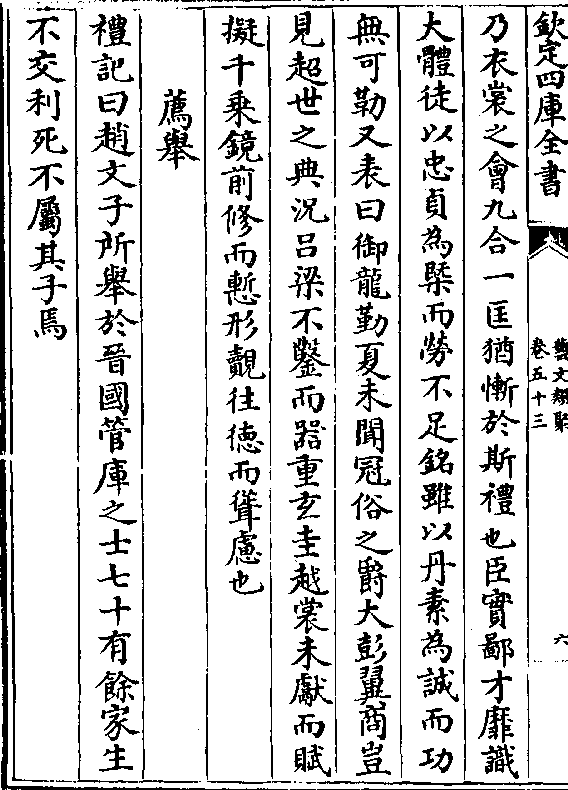 欽定四庫全書
藝文類聚
卷五十三
六
乃衣裳之會九合一匡猶慚於斯禮也臣實鄙才靡識
大體徒以忠貞為槩而勞不足銘雖以丹素為誠而功
無可勒又表曰御龍勤夏未聞冠俗之爵大彭翼商豈
見超世之典況吕梁不鑿而器重玄圭越裳未獻而賦
擬千乘鏡前修而慙形覿往徳而聳慮也
薦舉
禮記曰趙文子所舉於晉國管庫之士七十有餘家生
不交利死不屬其子焉